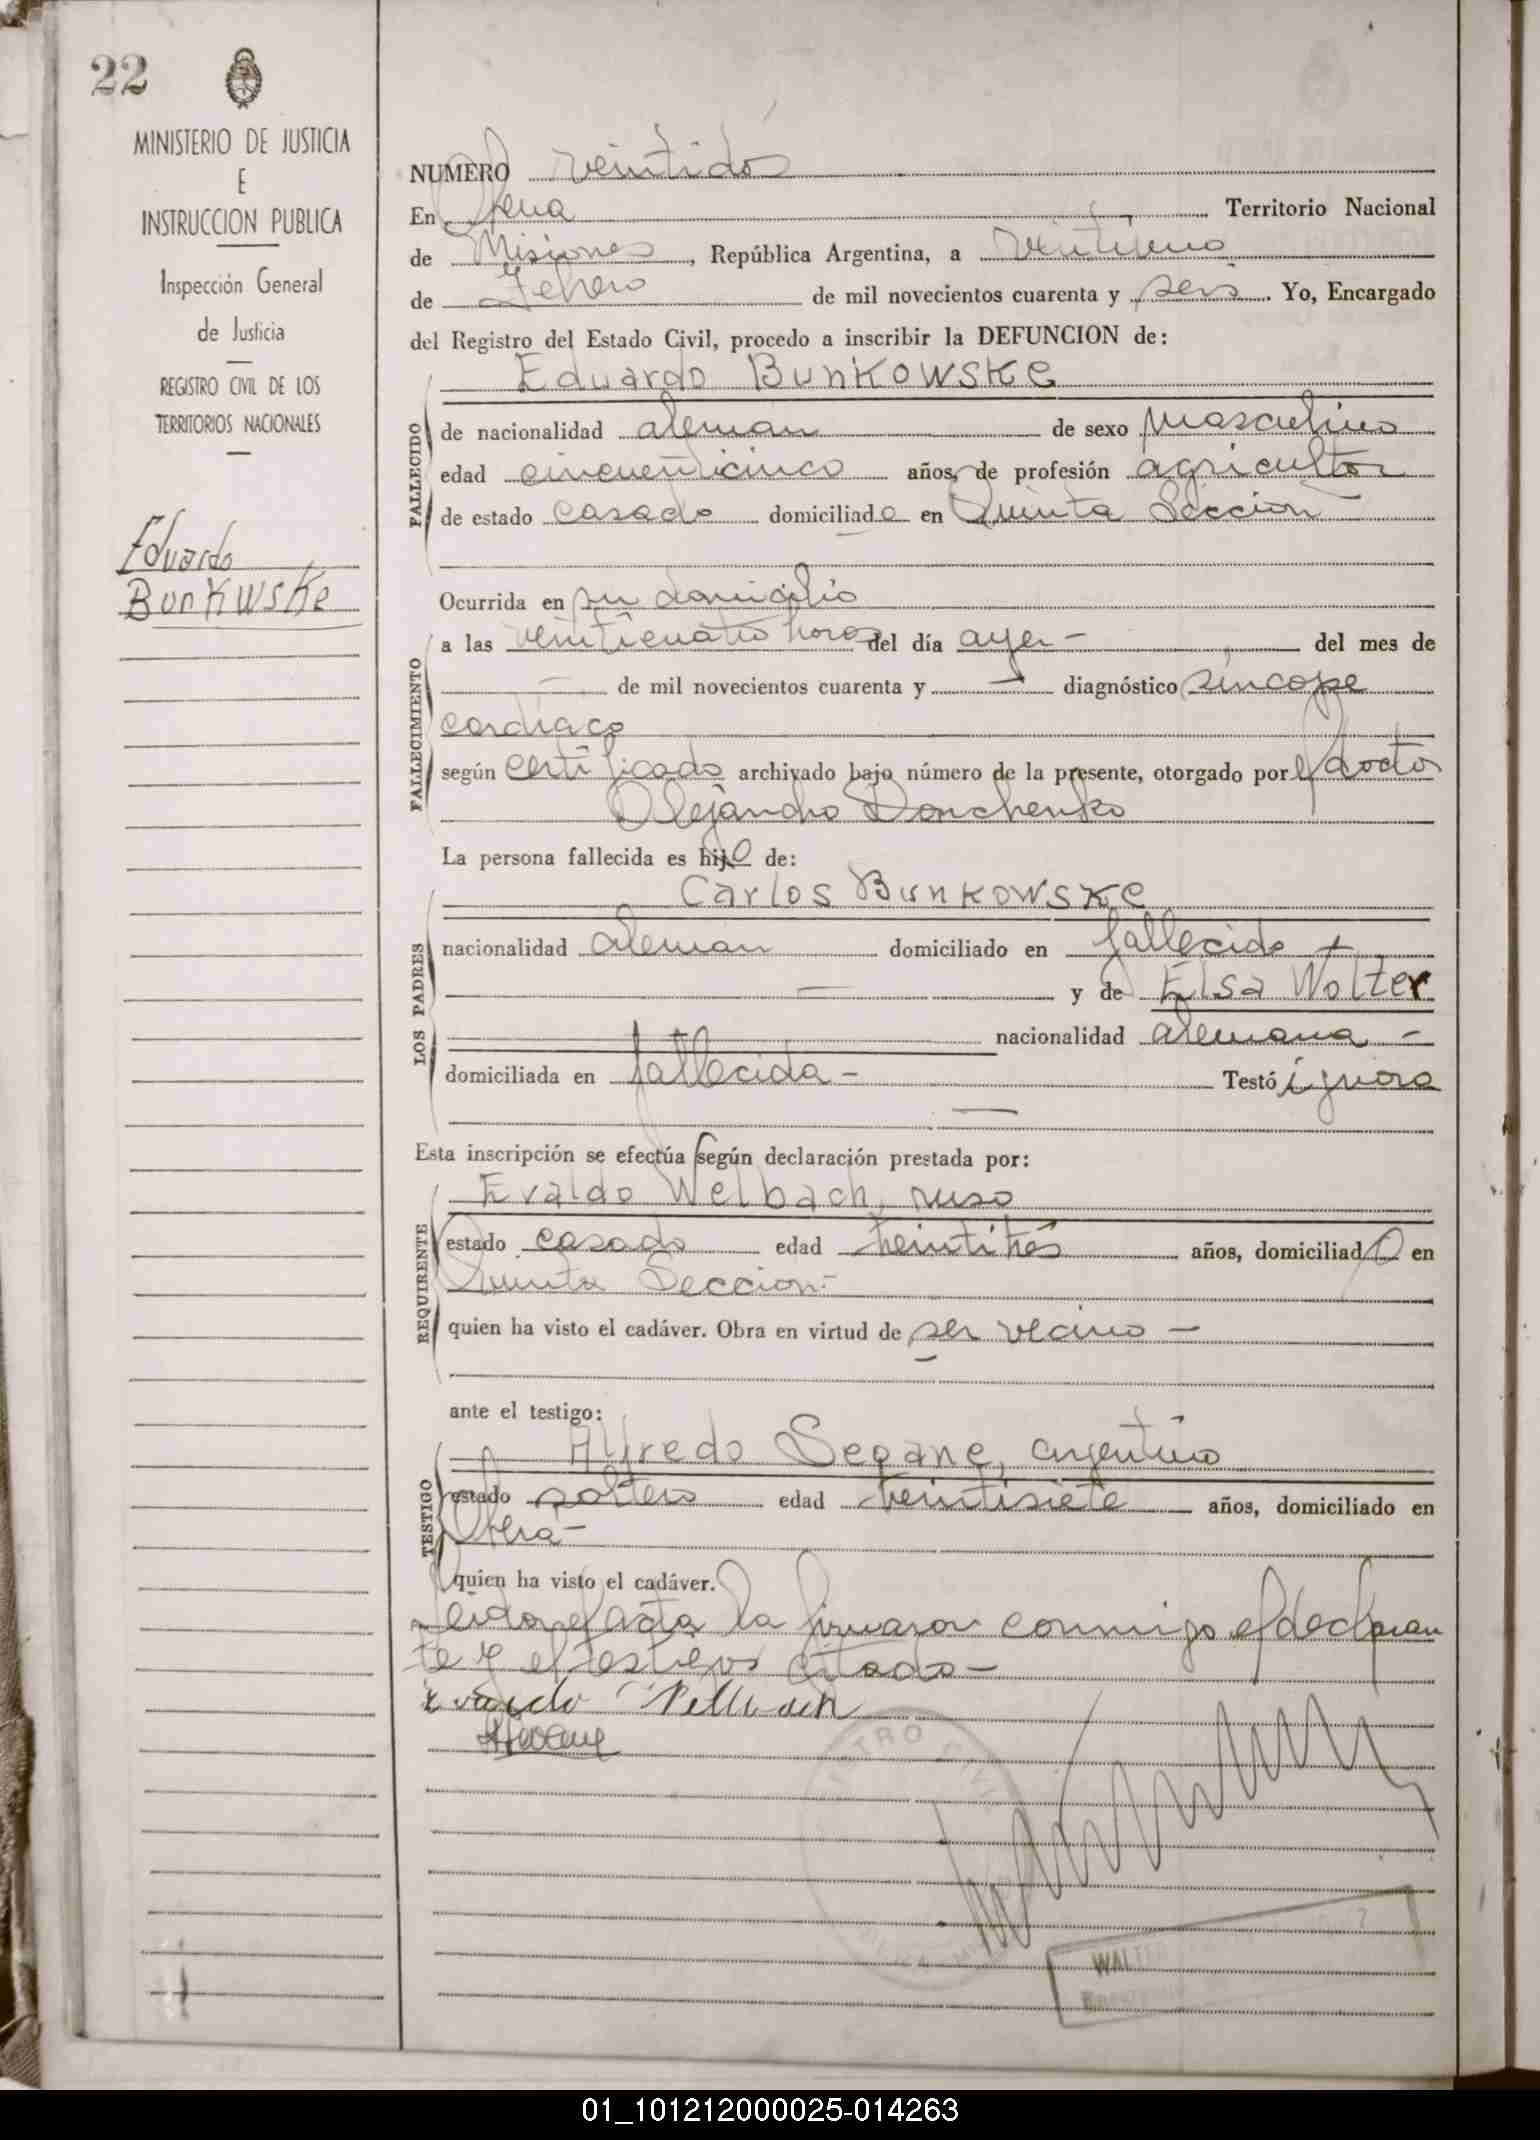 22
MINISTERIO DE JUSTICIA
E
INSTRUCCION PUBLICA
Inspección General
de Justicia
REGISTRO CIVIL DE LOS
TERRITORIOS NACIONALES
Eduardo
Bunkwske
NUMERO veintidós
En Obera Territorio Nacional
de Misiones, República Argentina, a veintiuno
de Febrero de mil novecientos cuarenta y seis. Yo, Encargado
del Registro del Estado Civil, procedo a inscribir la DEFUNCION de:
Eduardo Bunkowske
FALLECIDO
de nacionalidad aleman de sexo masculino
edad cincuenticinco años, de profesión agricultor
de estado casado domiciliado en Quinta Sección
Ocurrida en su domicilio
FALLECIMIENTO
a las veinticuatro horas del día ayer - del mes de
— de mil novecientos cuarenta y — diagnóstico síncope
cardíaco
según certificado archivado bajo número de la presente, otorgado por el doctor
Alejandro Donchenko
La persona fallecida es hijo de:
Carlos Bunkowske
LOS PADRES
nacionalidad aleman domiciliado en fallecido
— y de Elsa Wolter
nacionalidad alemana -
domiciliada en fallecida - Testó ignora
Esta inscripción se efectúa según declaración prestada por:
Evaldo Welbach, ruso
REQUIRENTE
estado casado edad treintitrés años, domiciliado en
Quinta Sección -
quien ha visto el cadáver. Obra en virtud de ser vecino -
ante el testigo:
Alfredo Segane, argentino
TESTIGO
estado soltero edad veintisiete años, domiciliado en
Obera -
quien ha visto el cadáver.
Leida el acta la firmaron conmigo el declaran
te y el testigo citado -
Evaldo Wellbach
WALTER
01_101212000025-014263